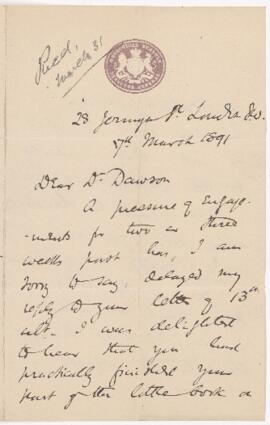 Recd,
March 31
28 Jermyn St. London SW.
7th March 1891
Dear Dr. Dawson
A pressure of engage-
-ments for two or three
weeks past has, I am
sorry to say, delayed my
reply to your letter of 13th
ult. I was delighted
to hear that you had
practically finished your
part of the little book on